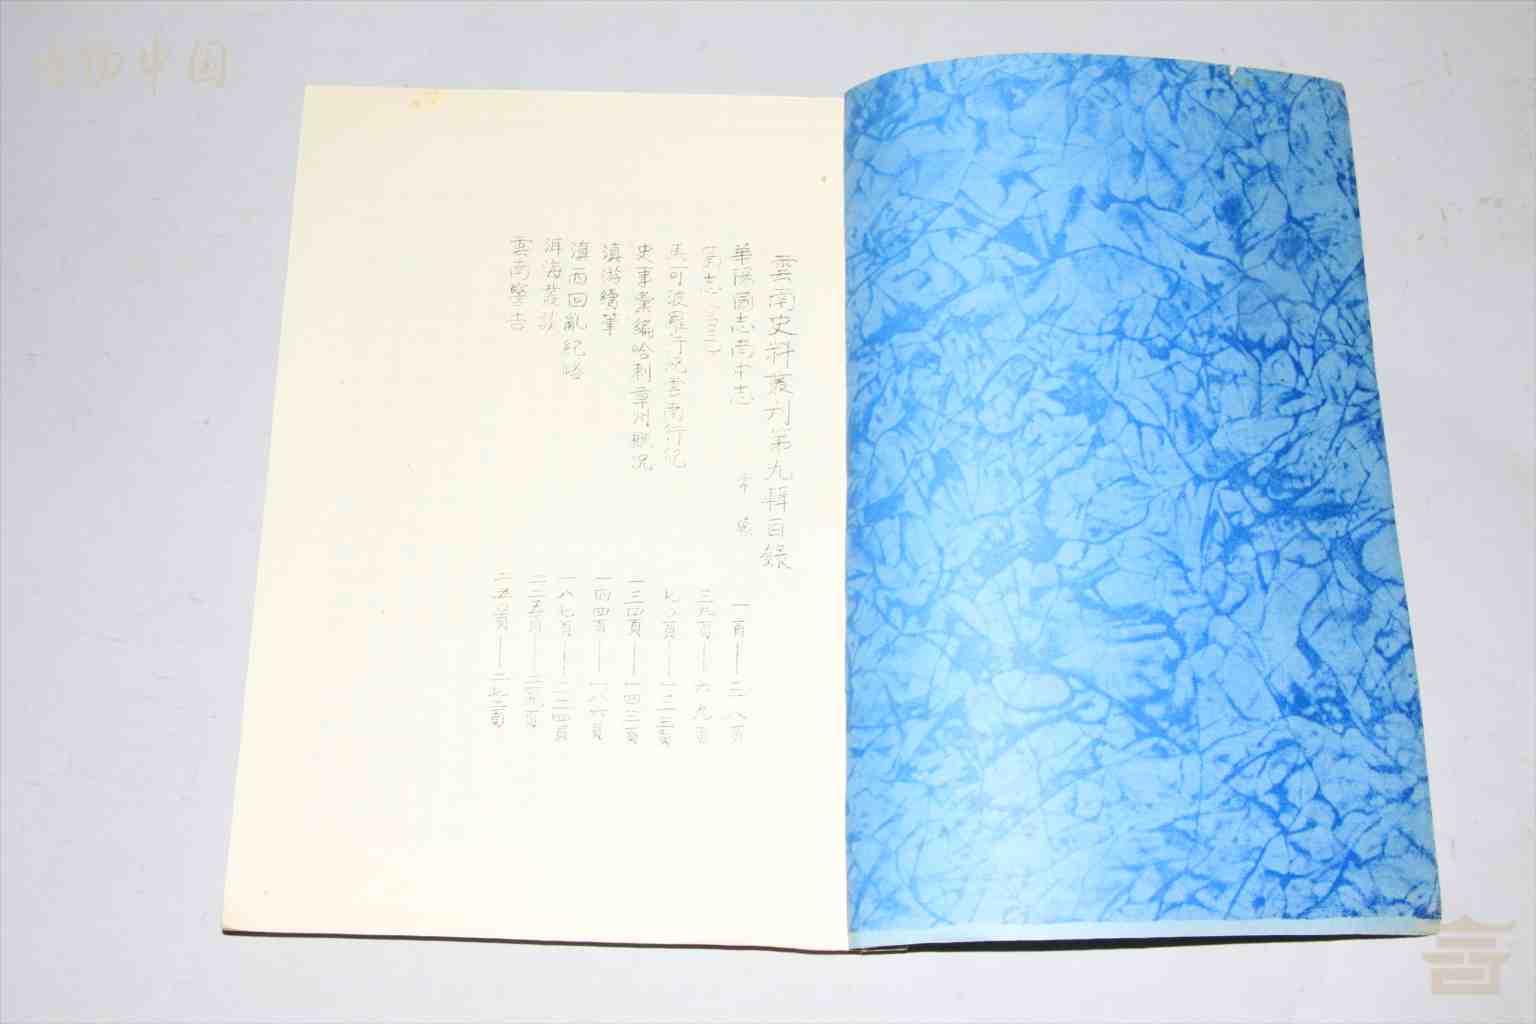 雲南史料叢刊第九輯目錄
華陽國志南中志 常璩 一頁——三八頁
南志 三九頁——六九頁
馬可波羅行紀雲南行紀 七〇頁——一三三頁
史事彙編哈剌章州概況 一三四頁——一四三頁
滇游續筆 一四四頁——一八六頁
滇西回亂紀略 一八七頁——二二四頁
洱海叢談 二二五頁——二四九頁
雲南 二五〇頁——二七二頁
中国